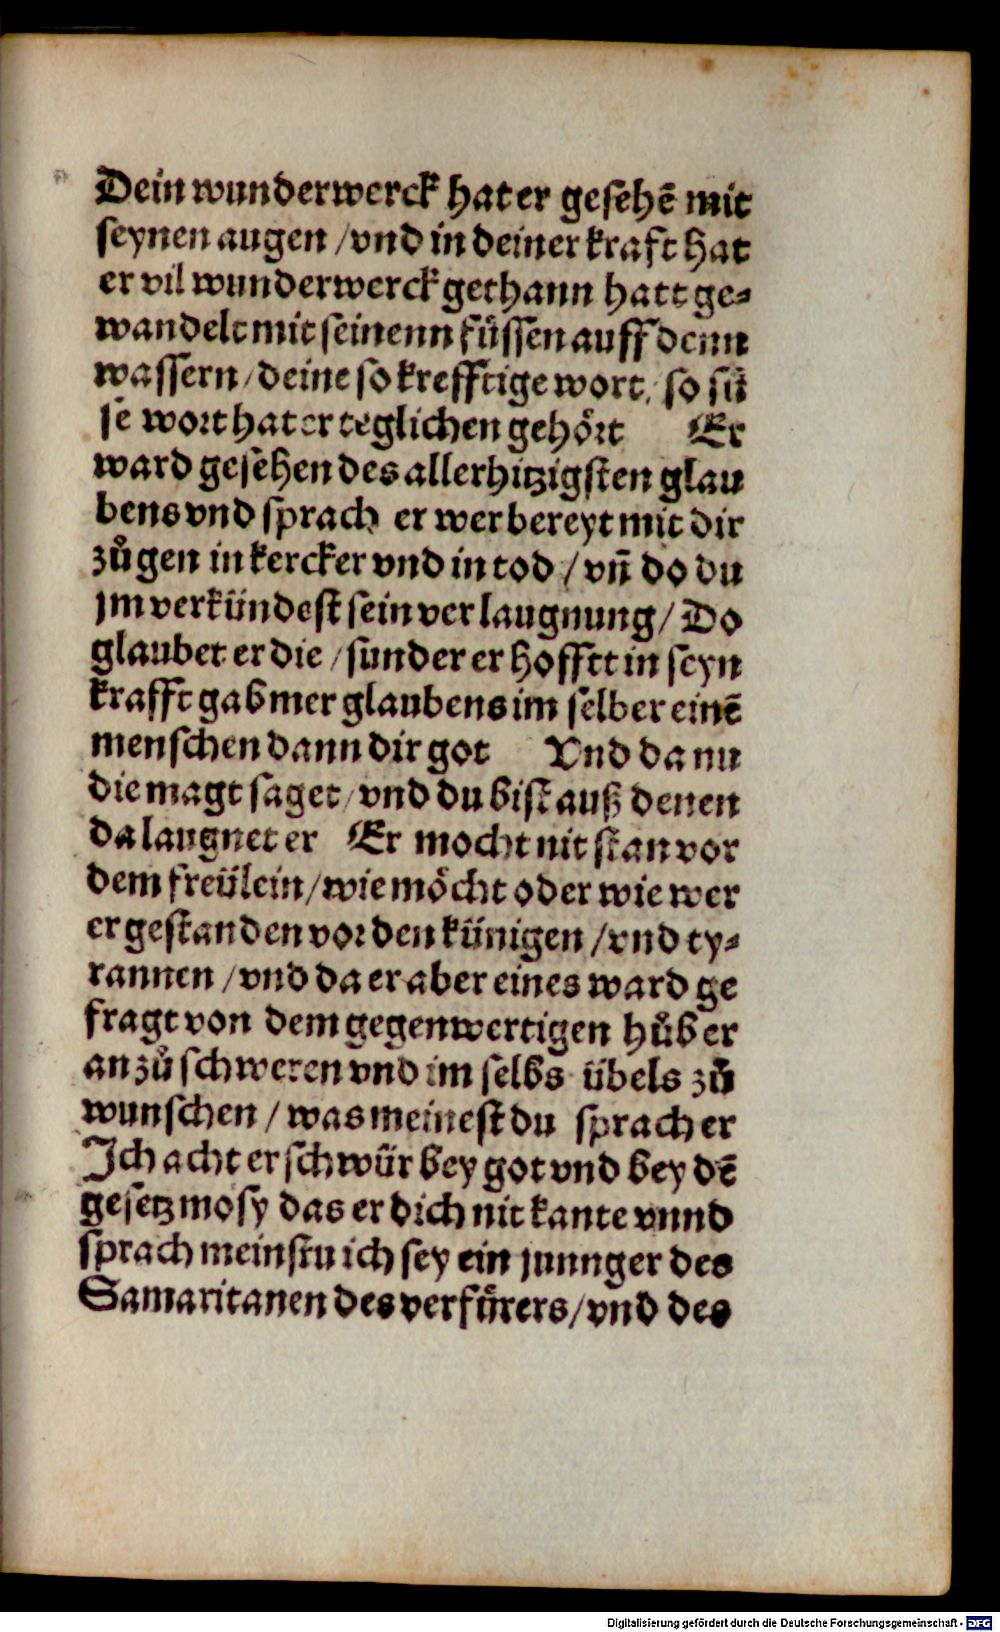 Dein wunderwerck hat er gesehē mit
seynen augen /vnd in deiner kraft hat
er vil wunderwerck gethann hatt ge⸗
wandelt mit seinenn fůssen auff denn
wassern/deine so krefftige wort/ so sů
se wort hat er teglichen gehört Er
ward gesehen des allerhitzigsten glau
bens vnd sprach er wer bereyt mit dir
zůgen in kercker vnd in tod /vn̄ do du
jm verkündest sein verlaugnung/ Do
glaubet er die /sunder er hofftt in seyn
krafft gab mer glaubens im selber einē
menschen dann dir got Vnd da nu
die magt saget/vnd du bist auß denen
da laugnet er Er mocht nit stan vor
dem freülein/wie möcht oder wie wer
er gestanden vor den künigen /vnd ty⸗
rannen /vnd da er aber eines ward ge
fragt von dem gegenwertigen hůb er
an zů schweren vnd im selbs übels zů
wunschen / was meinest du sprach er
Ich acht er schwür bey got vnd bey dē
gesetz mosy das er dich nit kante vnnd
sprach meinstu ich sey ein junnger des
Samaritanen des verfůrers/vnd des
Digitalisierung gefördert durch die Deutsche Forschungsgemeinschaft - DFG